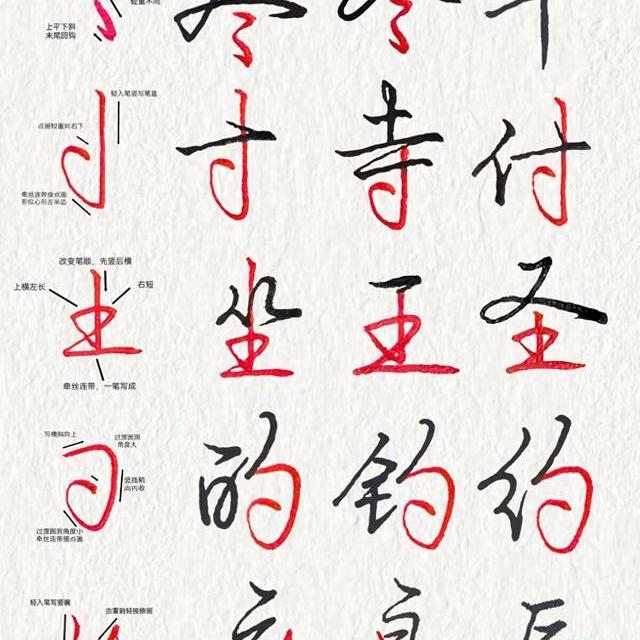 轻重不同
上平下斜
末尾回钩
轻入笔竖写笔直
点画较重向右下
牵丝连带接点画
形似心形左半边
寸 寺 付
改变笔顺，先竖后横
上横左长
右短
牵丝连带，一笔写成
坐 王 圣
写横斜向上
过渡圆润
角度大
竖线稍
向内收
过渡圆润角度小
牵丝连带接点画
的 钓 约
轻入笔写竖画